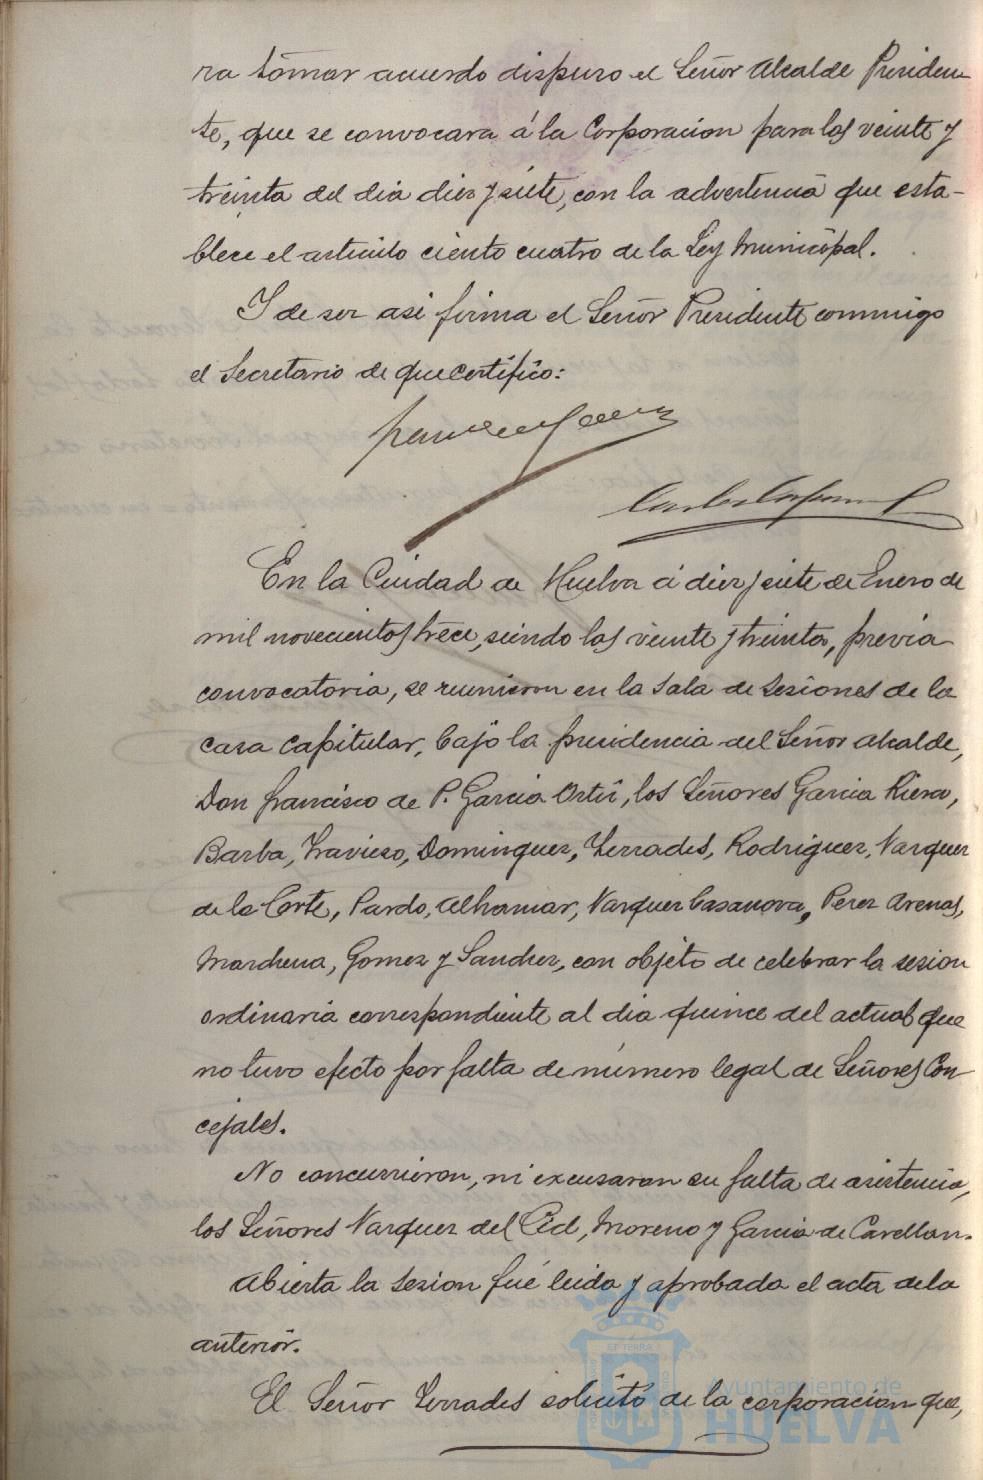 ra tomar acuerdo dispuso el Señor Alcalde Presiden
te, que se convocara á la Corporacion para las veinte y
treinta del dia diez y siete, con la advertencia que esta-
blece el articulo ciento cuatro de la Ley Municipal.
Y de ser asi firma el Señor Presidente conmigo
el Secretario de que certifico:
En la Ciudad de Huelva á diez y siete de Enero de
mil novecientos trece, siendo las veinte y treinta, previa
convocatoria, se reunieron en la sala de sesiones de la
casa capitular, bajo la presidencia del Señor Alcalde,
Don Francisco de P. Garcia Ortiz, los Señores Garcia Riera,
Barba, Travieso, Dominguez, Terrades, Rodriguez, Vazquez
de la Corte, Pardo, Alhamar, Vazquez Casanova, Perez Arenas,
Marchena, Gomez y Sanchez, con objeto de celebrar la sesion
ordinaria correspondiente al dia quince del actual que
no tuvo efecto por falta de número legal de Señores Con-
cejales.
No concurrieron, ni excusaron su falta de asistencia,
los Señores Vazquez del Cid, Moreno y Garcia de Cavellan.
Abierta la sesion fué leida y aprobada el acta de la
anterior.
El Señor Terrades solicitó de la corporacion que,
Ayuntamiento de
HUELVA